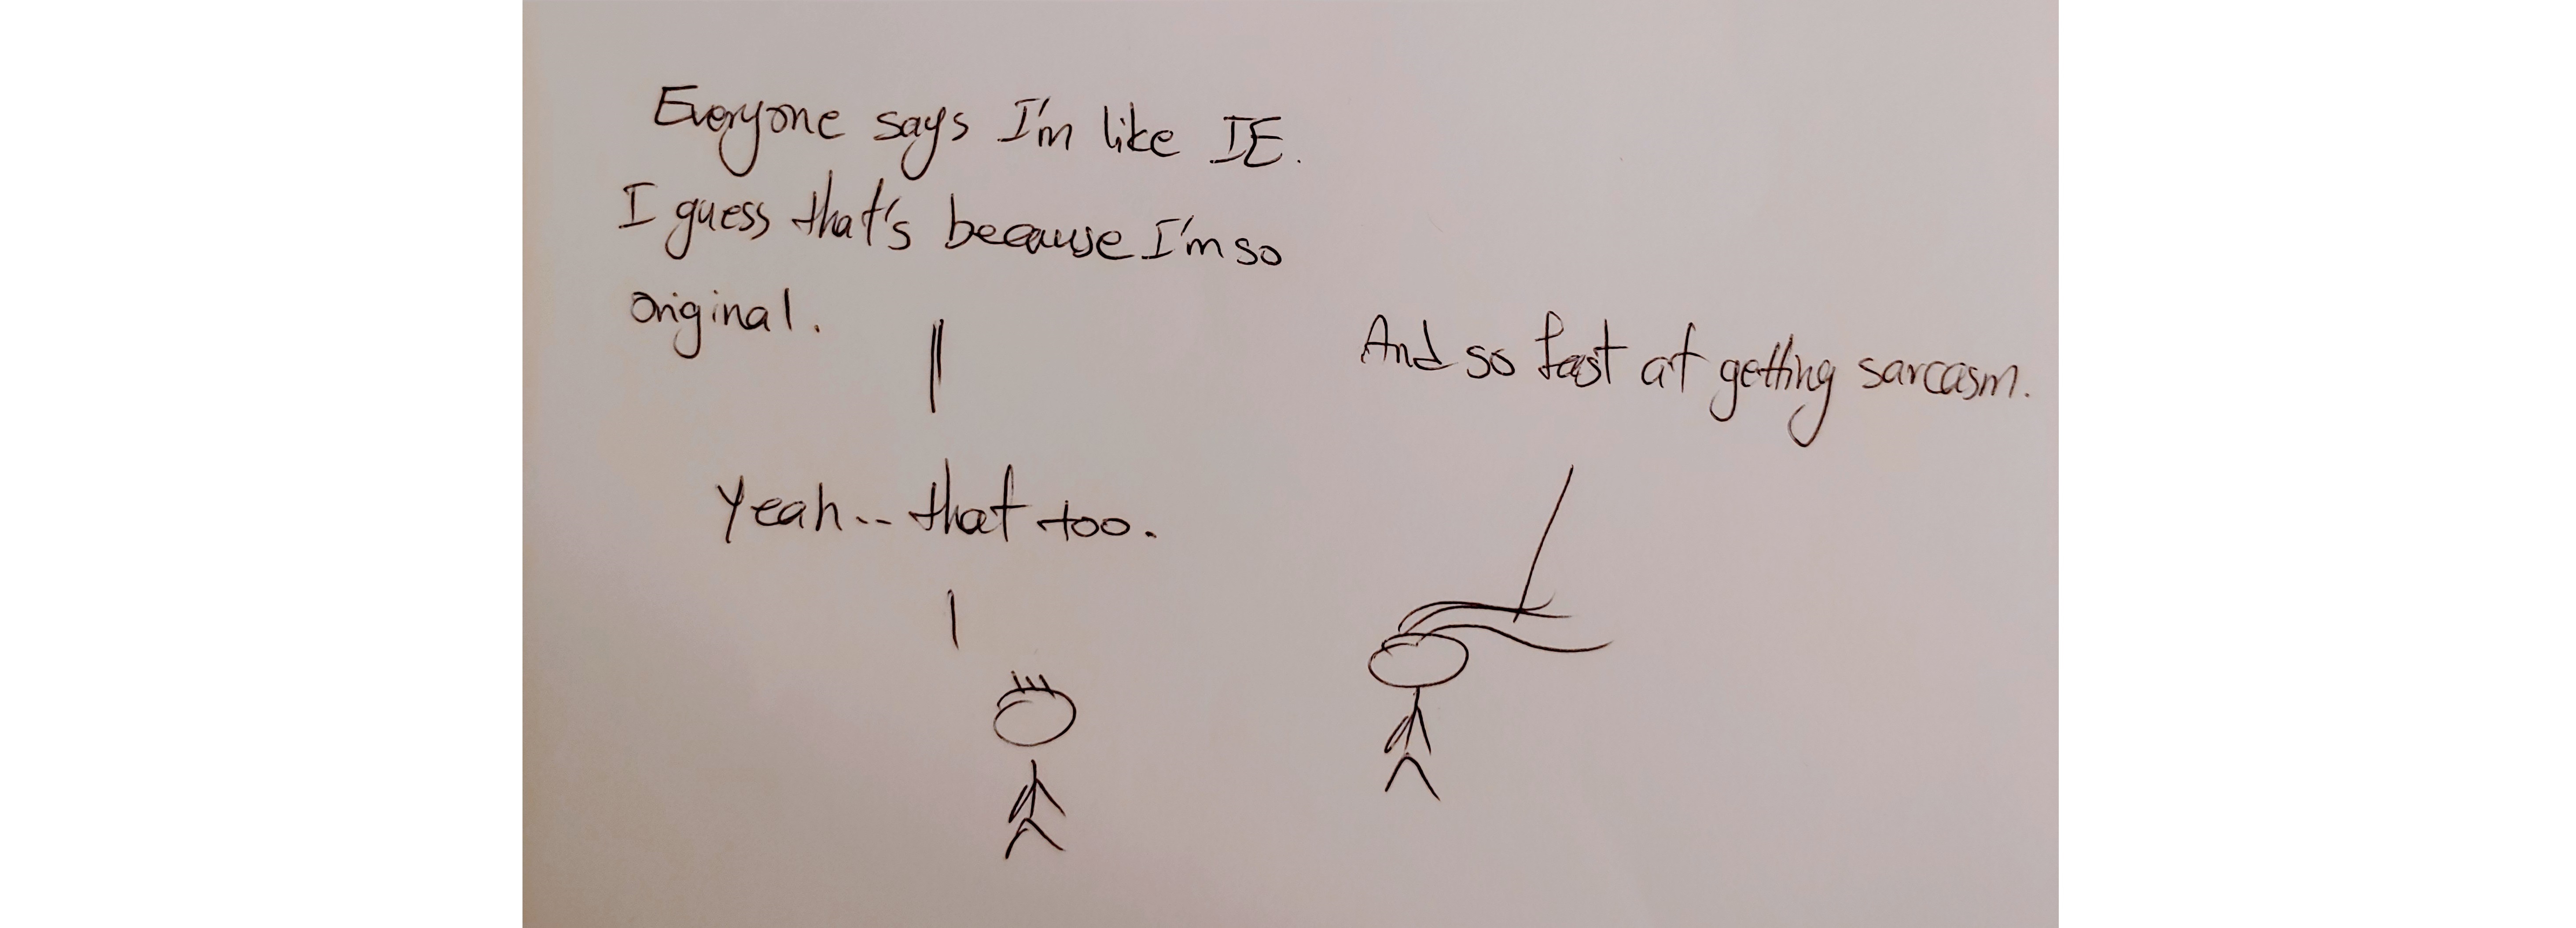 Everyone says I'm like IE.
I guess that's because I'm so
original.
And so fast at getting sarcasm.
Yeah... that too.